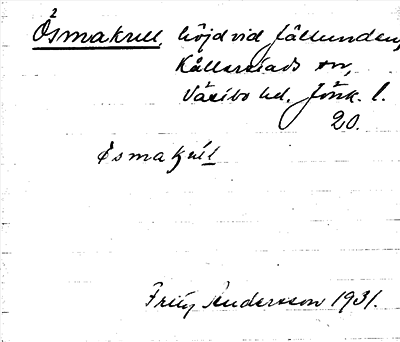 Ösmakull, höjd vid Fällunden,
Källerstads sn,
Västbo hd. Jönk. l.
20.
Ösmakull
Fritz Andersson 1931.